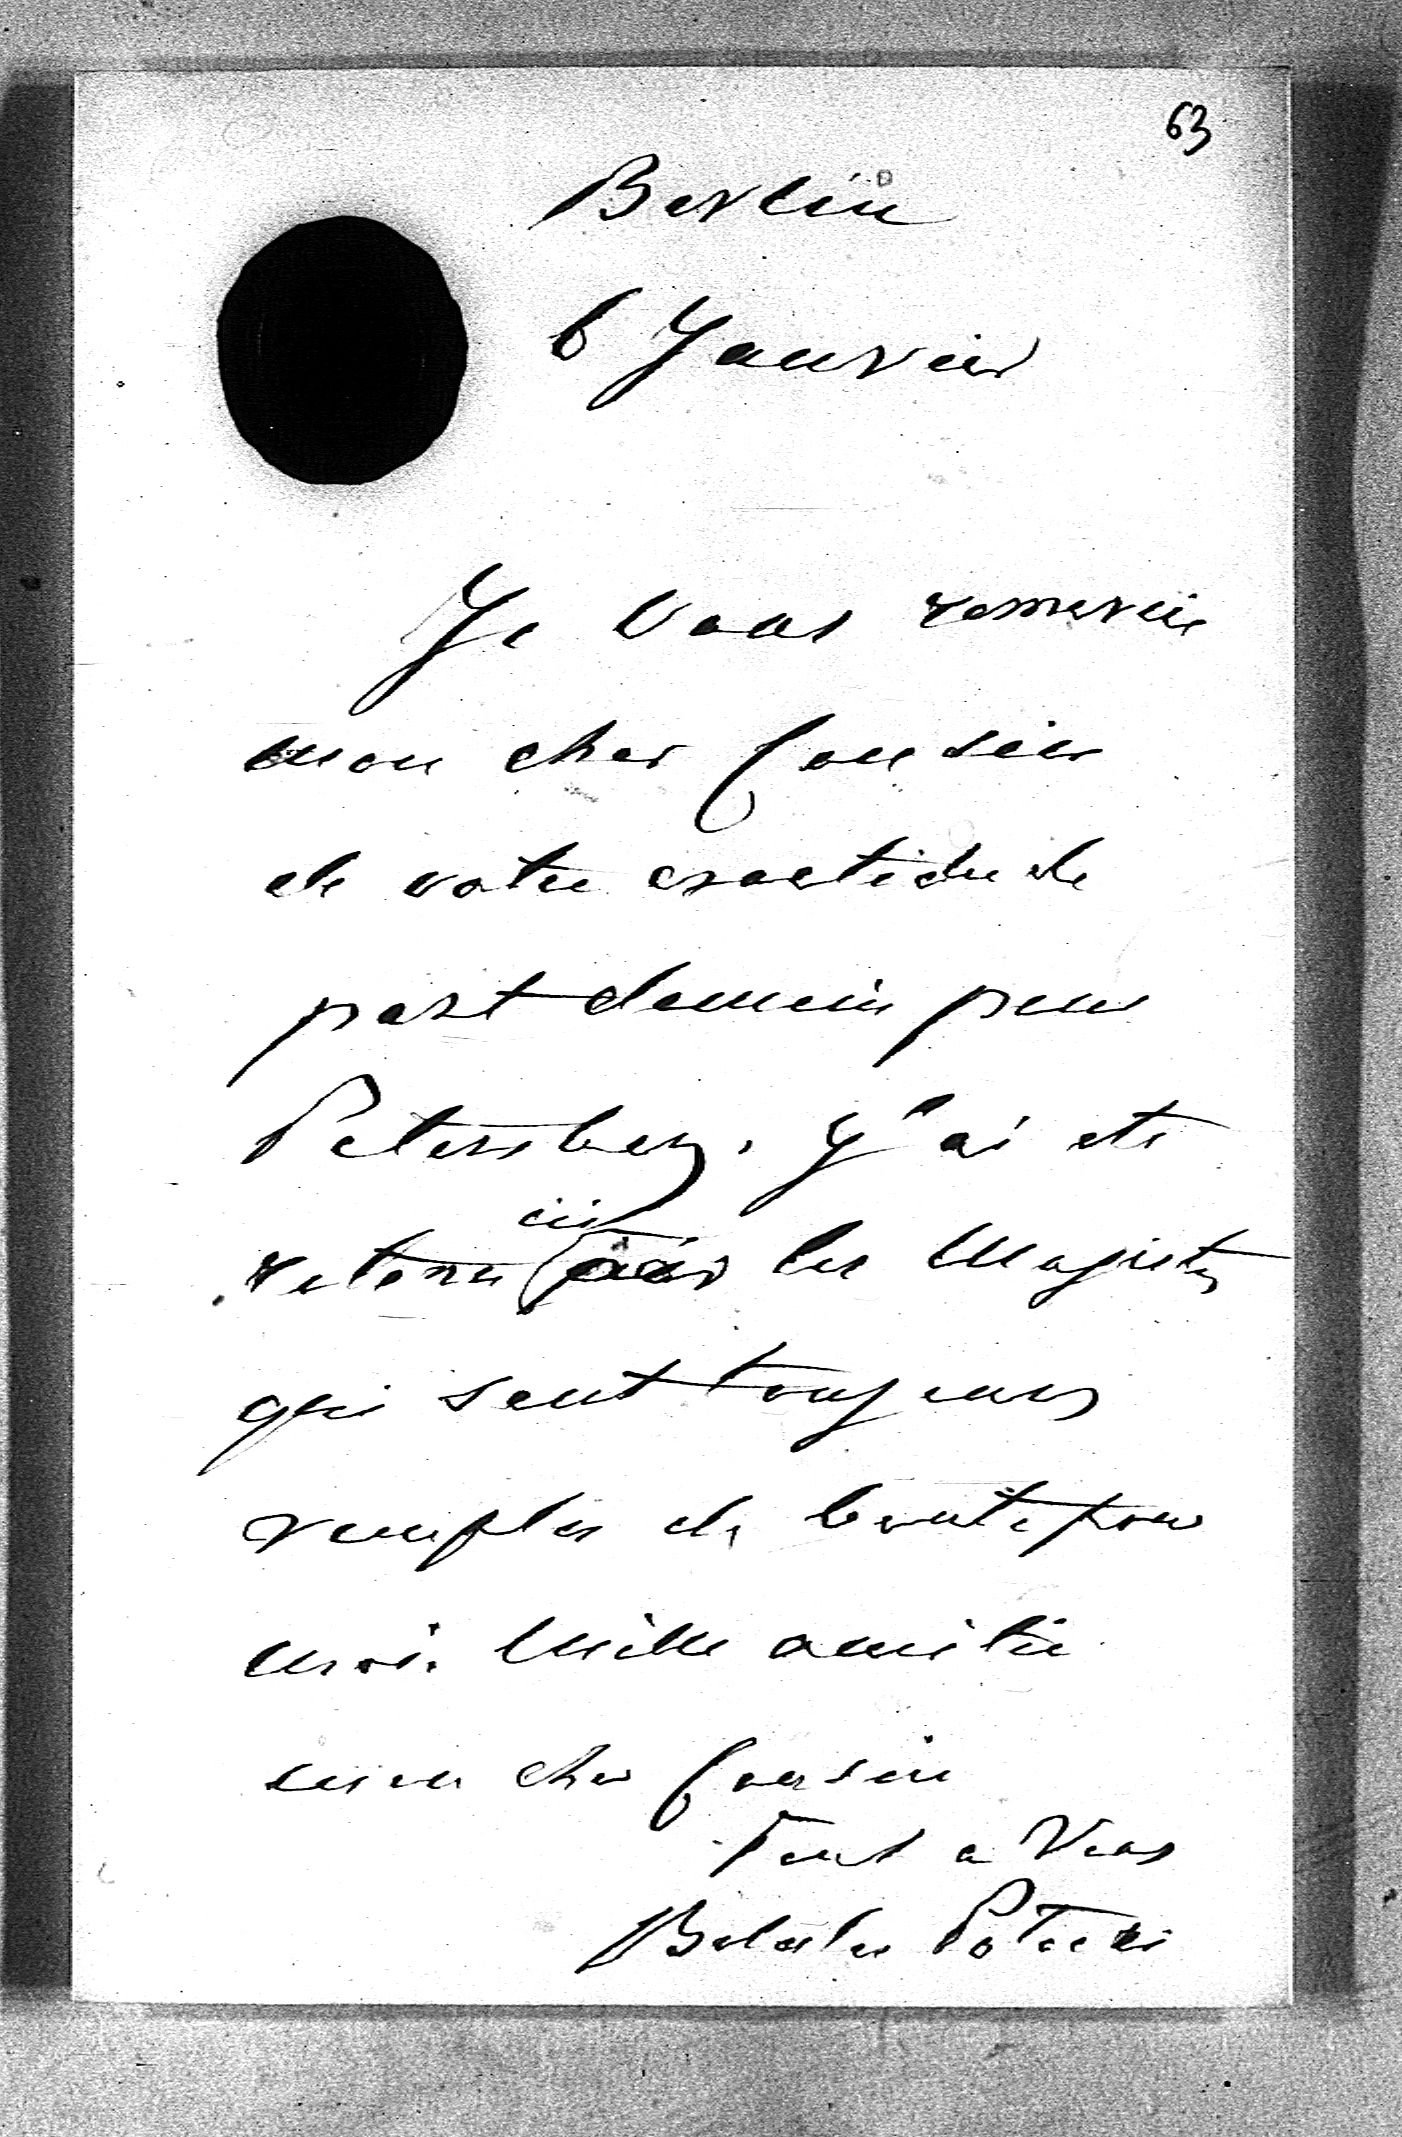 63
Berlin
6 Janvier
Je Vous remercie
mon cher Cousin
de votre exactidude
part demain pour
Petersburg. J'ai ete
retenu ici par les Magistés
qui sont toujours
remplis de bonté pour
moi. Mille amitié
mon cher Cousin
Tout a Vous
Boleslas Potocki